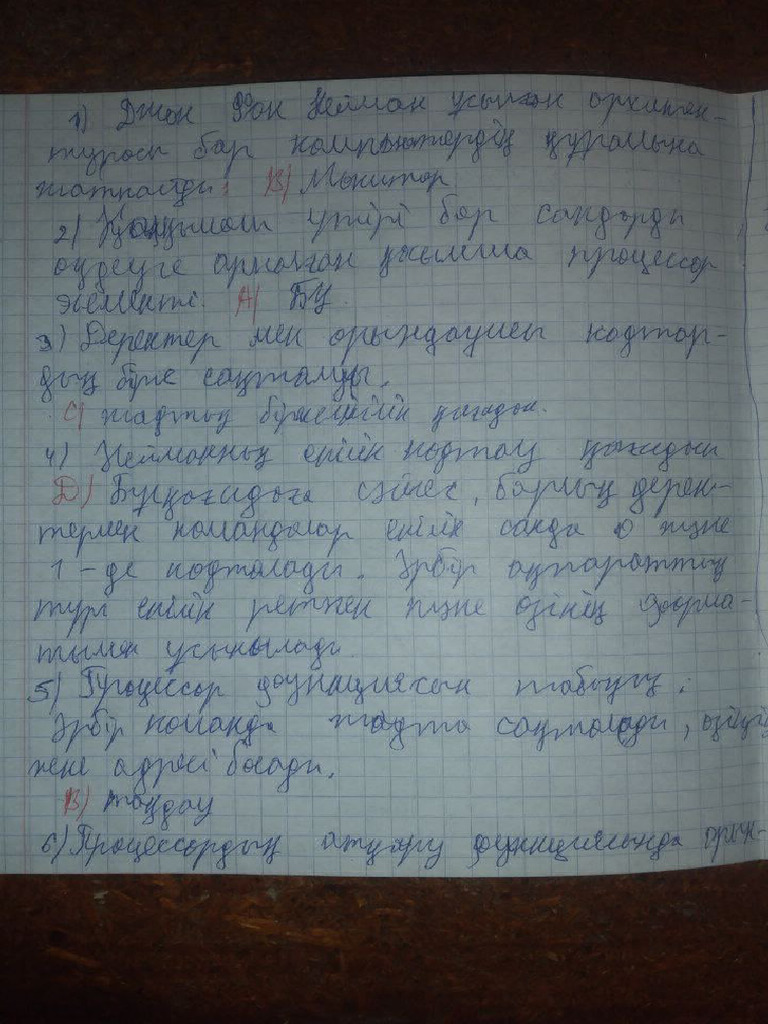 1) Джон Фон Нейман ұсынған архитек-
турасы бар компьютердің құрамына
жатпайды: В) Монитор
2) Қалқымалы үтірі бар сандарды
өңдеуге арналған қосымша процессор
элементі. А) БУ.
3) Деректер мен орындаушы кодтар-
дың бірге сақталуы.
С) жадтың біркелкілік қағидасы.
4) Нейманның екілік кодтау қағидасы
D) Бұл қағидаға сәйкес, барлық дерек-
термен командалар екілік санда 0 және
1-де кодталады. Әрбір ақпараттың
түрі екілік ретпен және өзінің форма-
тымен ұсынылады.
5) Процессор функциясын табыңыз:
Әрбір команда жадта сақталады, өзінің
жеке адресі болады.
В) таңдау
6) Процессордың атқару функциясында орын-